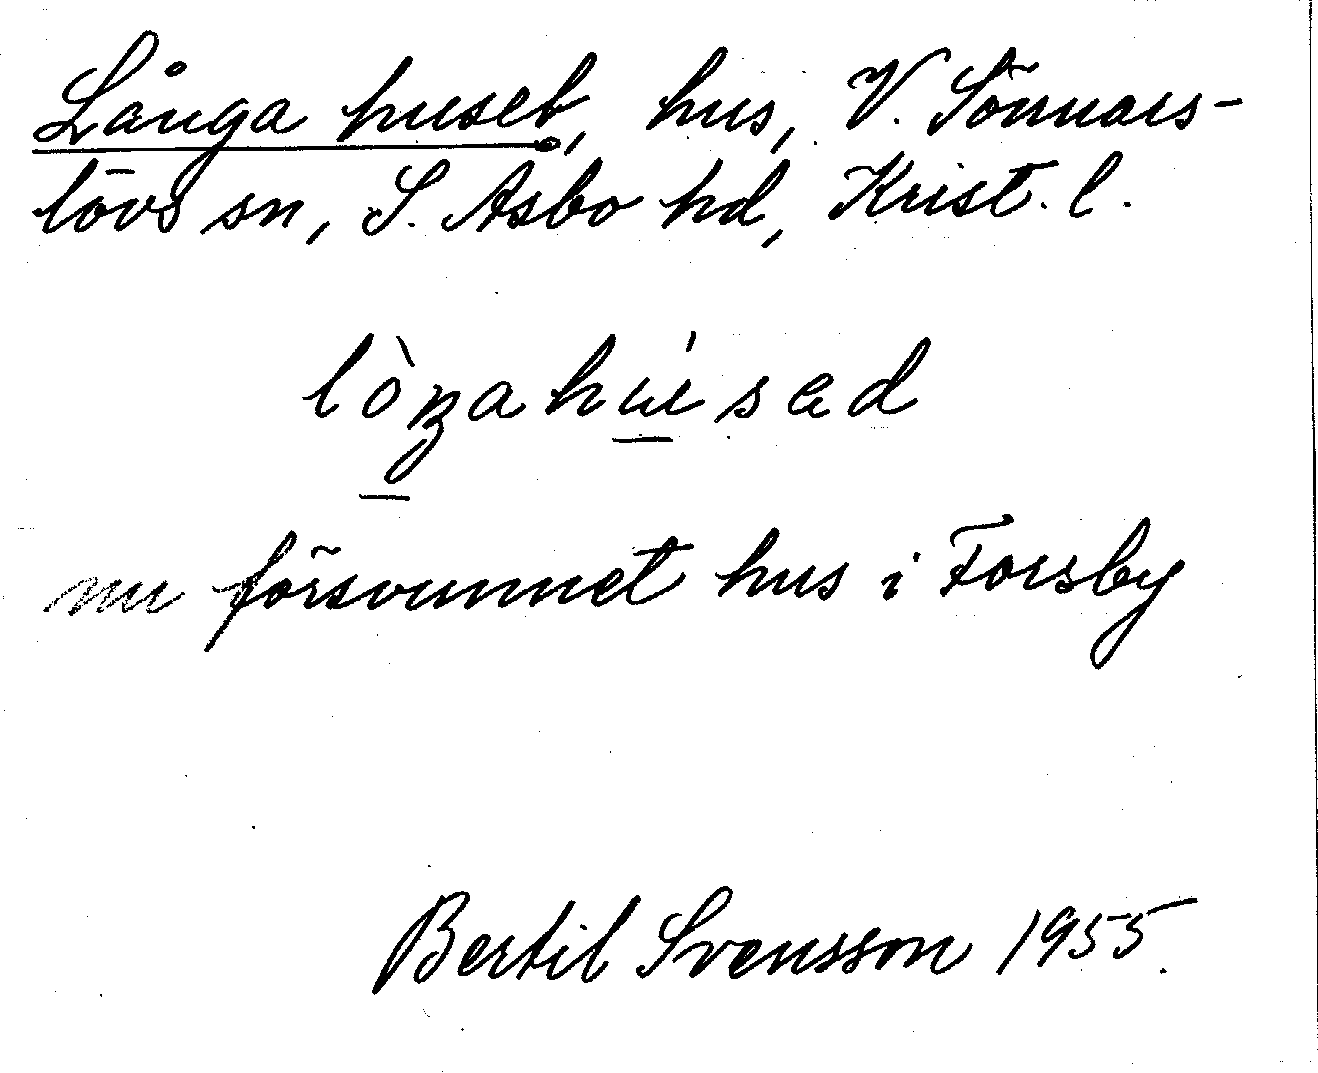 Långa huset, hus, V. Sönnars-
lövs sn, S. Åsbo hd, Krist. l.
nu försvunnet hus i Forsby
Bertil Svensson 1955.